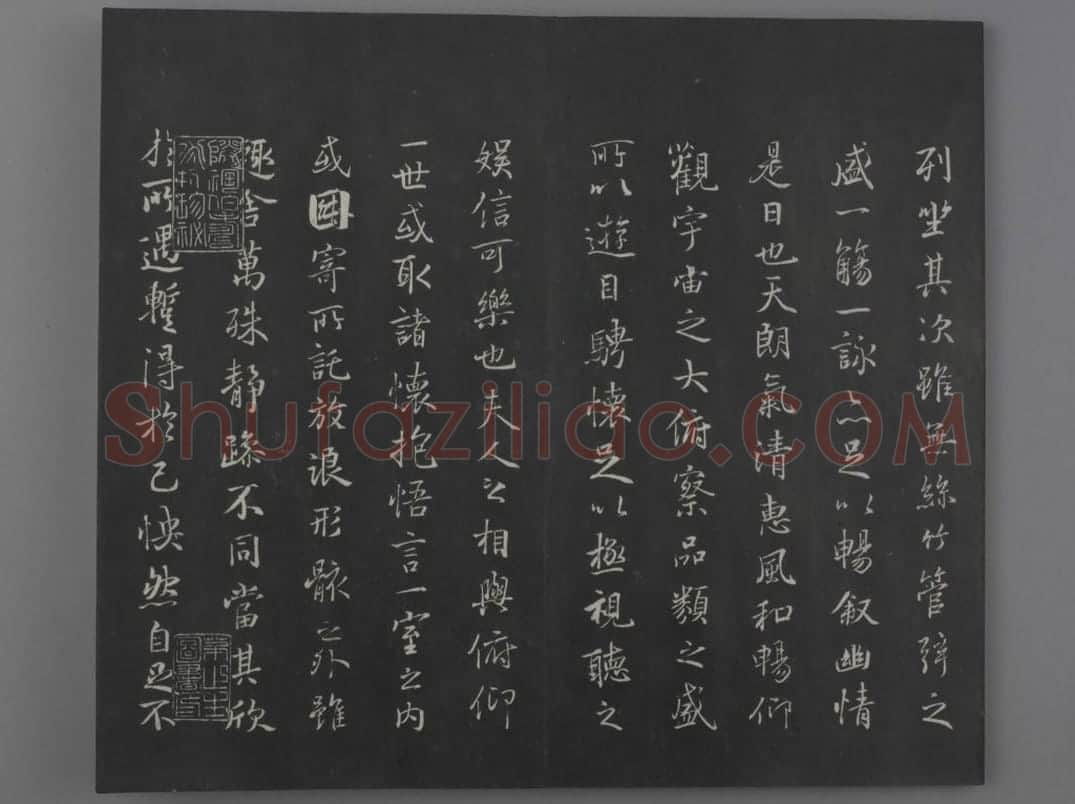 列坐其次雖無絲竹管弦之
盛一觴一詠亦足以暢敘幽情
是日也天朗氣清惠風和暢仰
觀宇宙之大俯察品類之盛
所以遊目騁懷足以極視聽之
娛信可樂也夫人之相與俯仰
一世或取諸懷抱悟言一室之內
或因寄所託放浪形骸之外雖
趣舍萬殊靜躁不同當其欣
於所遇暫得於己快然自足不
Shufaziliao.COM